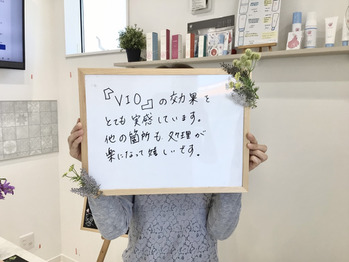 『VIO』の効果を
とても実感しています。
他の箇所も処理が
楽になって嬉しいです。